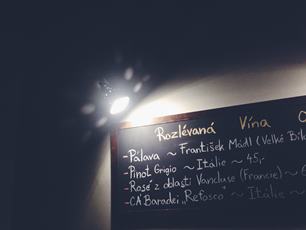 Rozlévaná Vína
- Pálava ~ František Mádl (Velké Bílo
- Pinot Grigio ~ Itálie ~ 45,-
- Rosé z oblasti Vancluse (Francie) ~
- CA' Baradei „Refosco" ~ Itálie ~